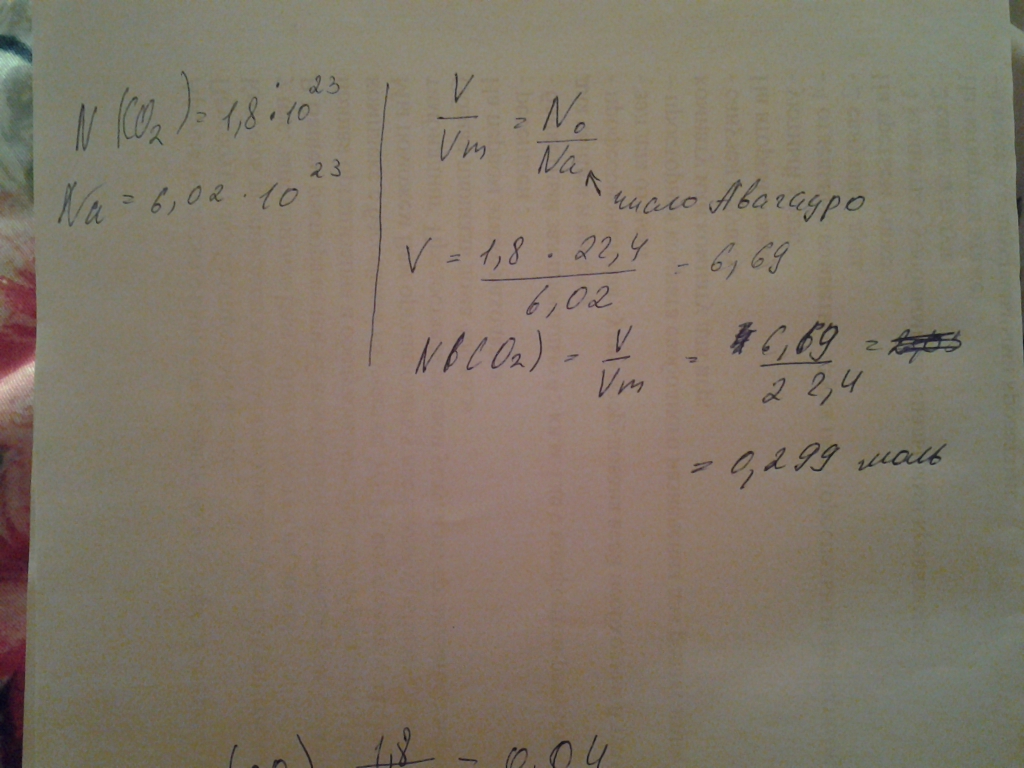 N(CO₂) = 1,8 · 10²³
Na = 6,02 · 10²³
V/Vm = N₀/Na
число Авагадро
V = 1,8 · 22,4 / 6,02 = 6,69
N В(CO₂) = V/Vm = 6,69/22,4 =
= 0,299 моль
1,8 = 0,04